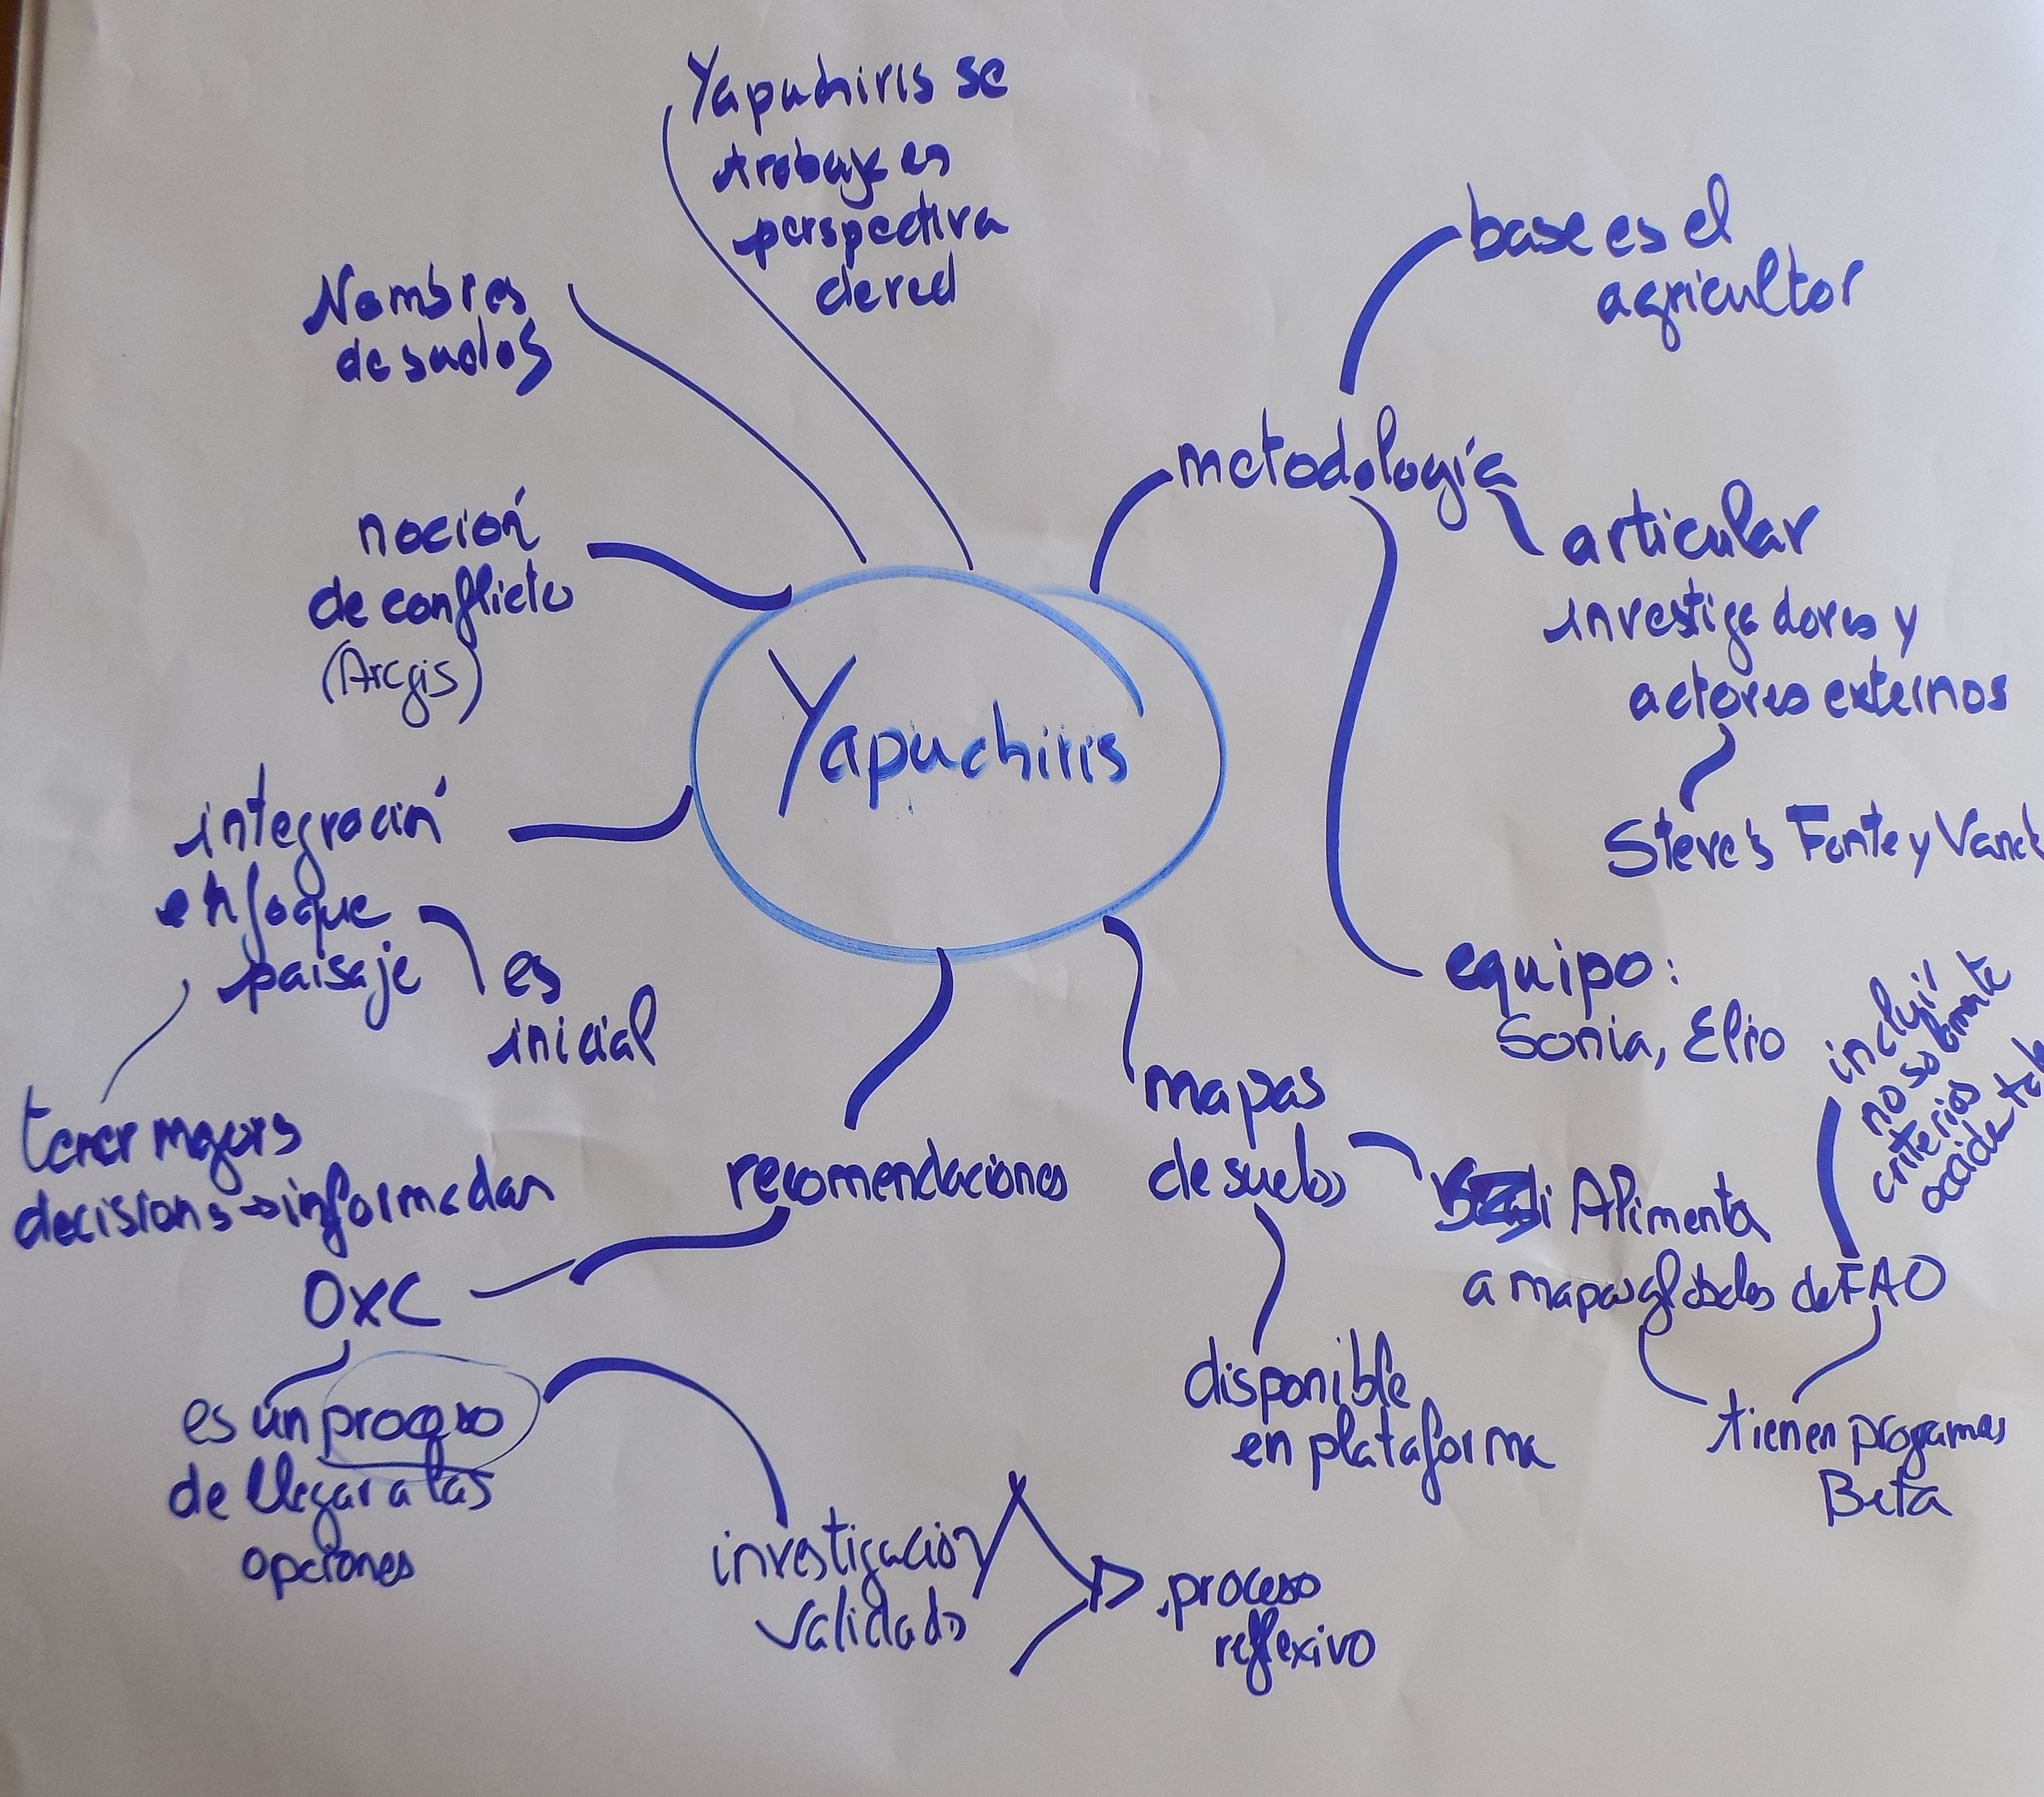 Yapuchiris se
trabaje en
perspectiva
de red
Nombres
de suelos
noción
de conflicto
(Arcgis)
integración
enfoque
paisaje
es
inicial
tener mejors
decisions → informadas
Yapuchiris
metodología
base es el
agricultor
articular
investigadores y
actores externos
Steve's Fonte y
equipo:
Sonia, Elio
mapas
de suelos
Alimenta
a mapas globales de FAO
incluji
no solamente
criterios
tienen programas
Beta
disponible
en plataforma
recomendaciones
OXC
es un proceso
de llegar a las
opciones
investigación
validado
proceso
reflexivo